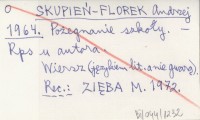 O SKUPIEŃ-FLOREK Andrzej
1964. Pożegnanie szkoły. –
Rps u autora.
Wiersz (językiem lit. a nie gwarą).
Rec.: ZIĘBA M. 1972.